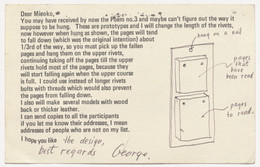 Dear Mieoko,
You may have received by now the Poem no.3 and maybe can't figure out the way it
suppose to be hung. These are prototypes and I will change the length of the rivets,
now however when hung as shown, the pages will tend
to fall down (which was the original intention) about
1/3rd of the way, so you must pick up the fallen
pages and hang them on the upper rivets,
continuing taking off the pages through the rivets
until upper holds most of the pages, because they
will start falling again when the upper course
is full. I could use instead of longer rivets
bolts with threads which would also prevent
the pages from falling down.
I also will make several models with wood
backs or thicker leatherd.
I can send copies to all the participants
if you let me know their addresses, I mean
addresses of people who are not on my list.
I hope you like the design,
best regards George.
hang on a nail
pages
that
have
been read
pages
to read